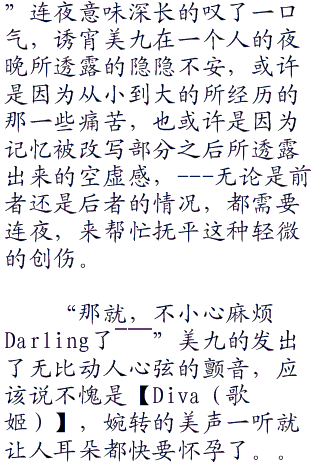 ”连夜意味深长的叹了一口
气，诱宵美九在一个人的夜
晚所透露的隐隐不安，或许
是因为从小到大的所经历的
那一些痛苦，也或许是因为
记忆被改写部分之后所透露
出来的空虚感，---无论是前
者还是后者的情况，都需要
连夜，来帮忙抚平这种轻微
的创伤。
“那就，不小心麻烦
Darling了~~” 美九的发出
了无比动人心弦的颤音，应
该说不愧是【Diva（歌
姬）】，婉转的美声一听就
让人耳朵都快要怀孕了。。